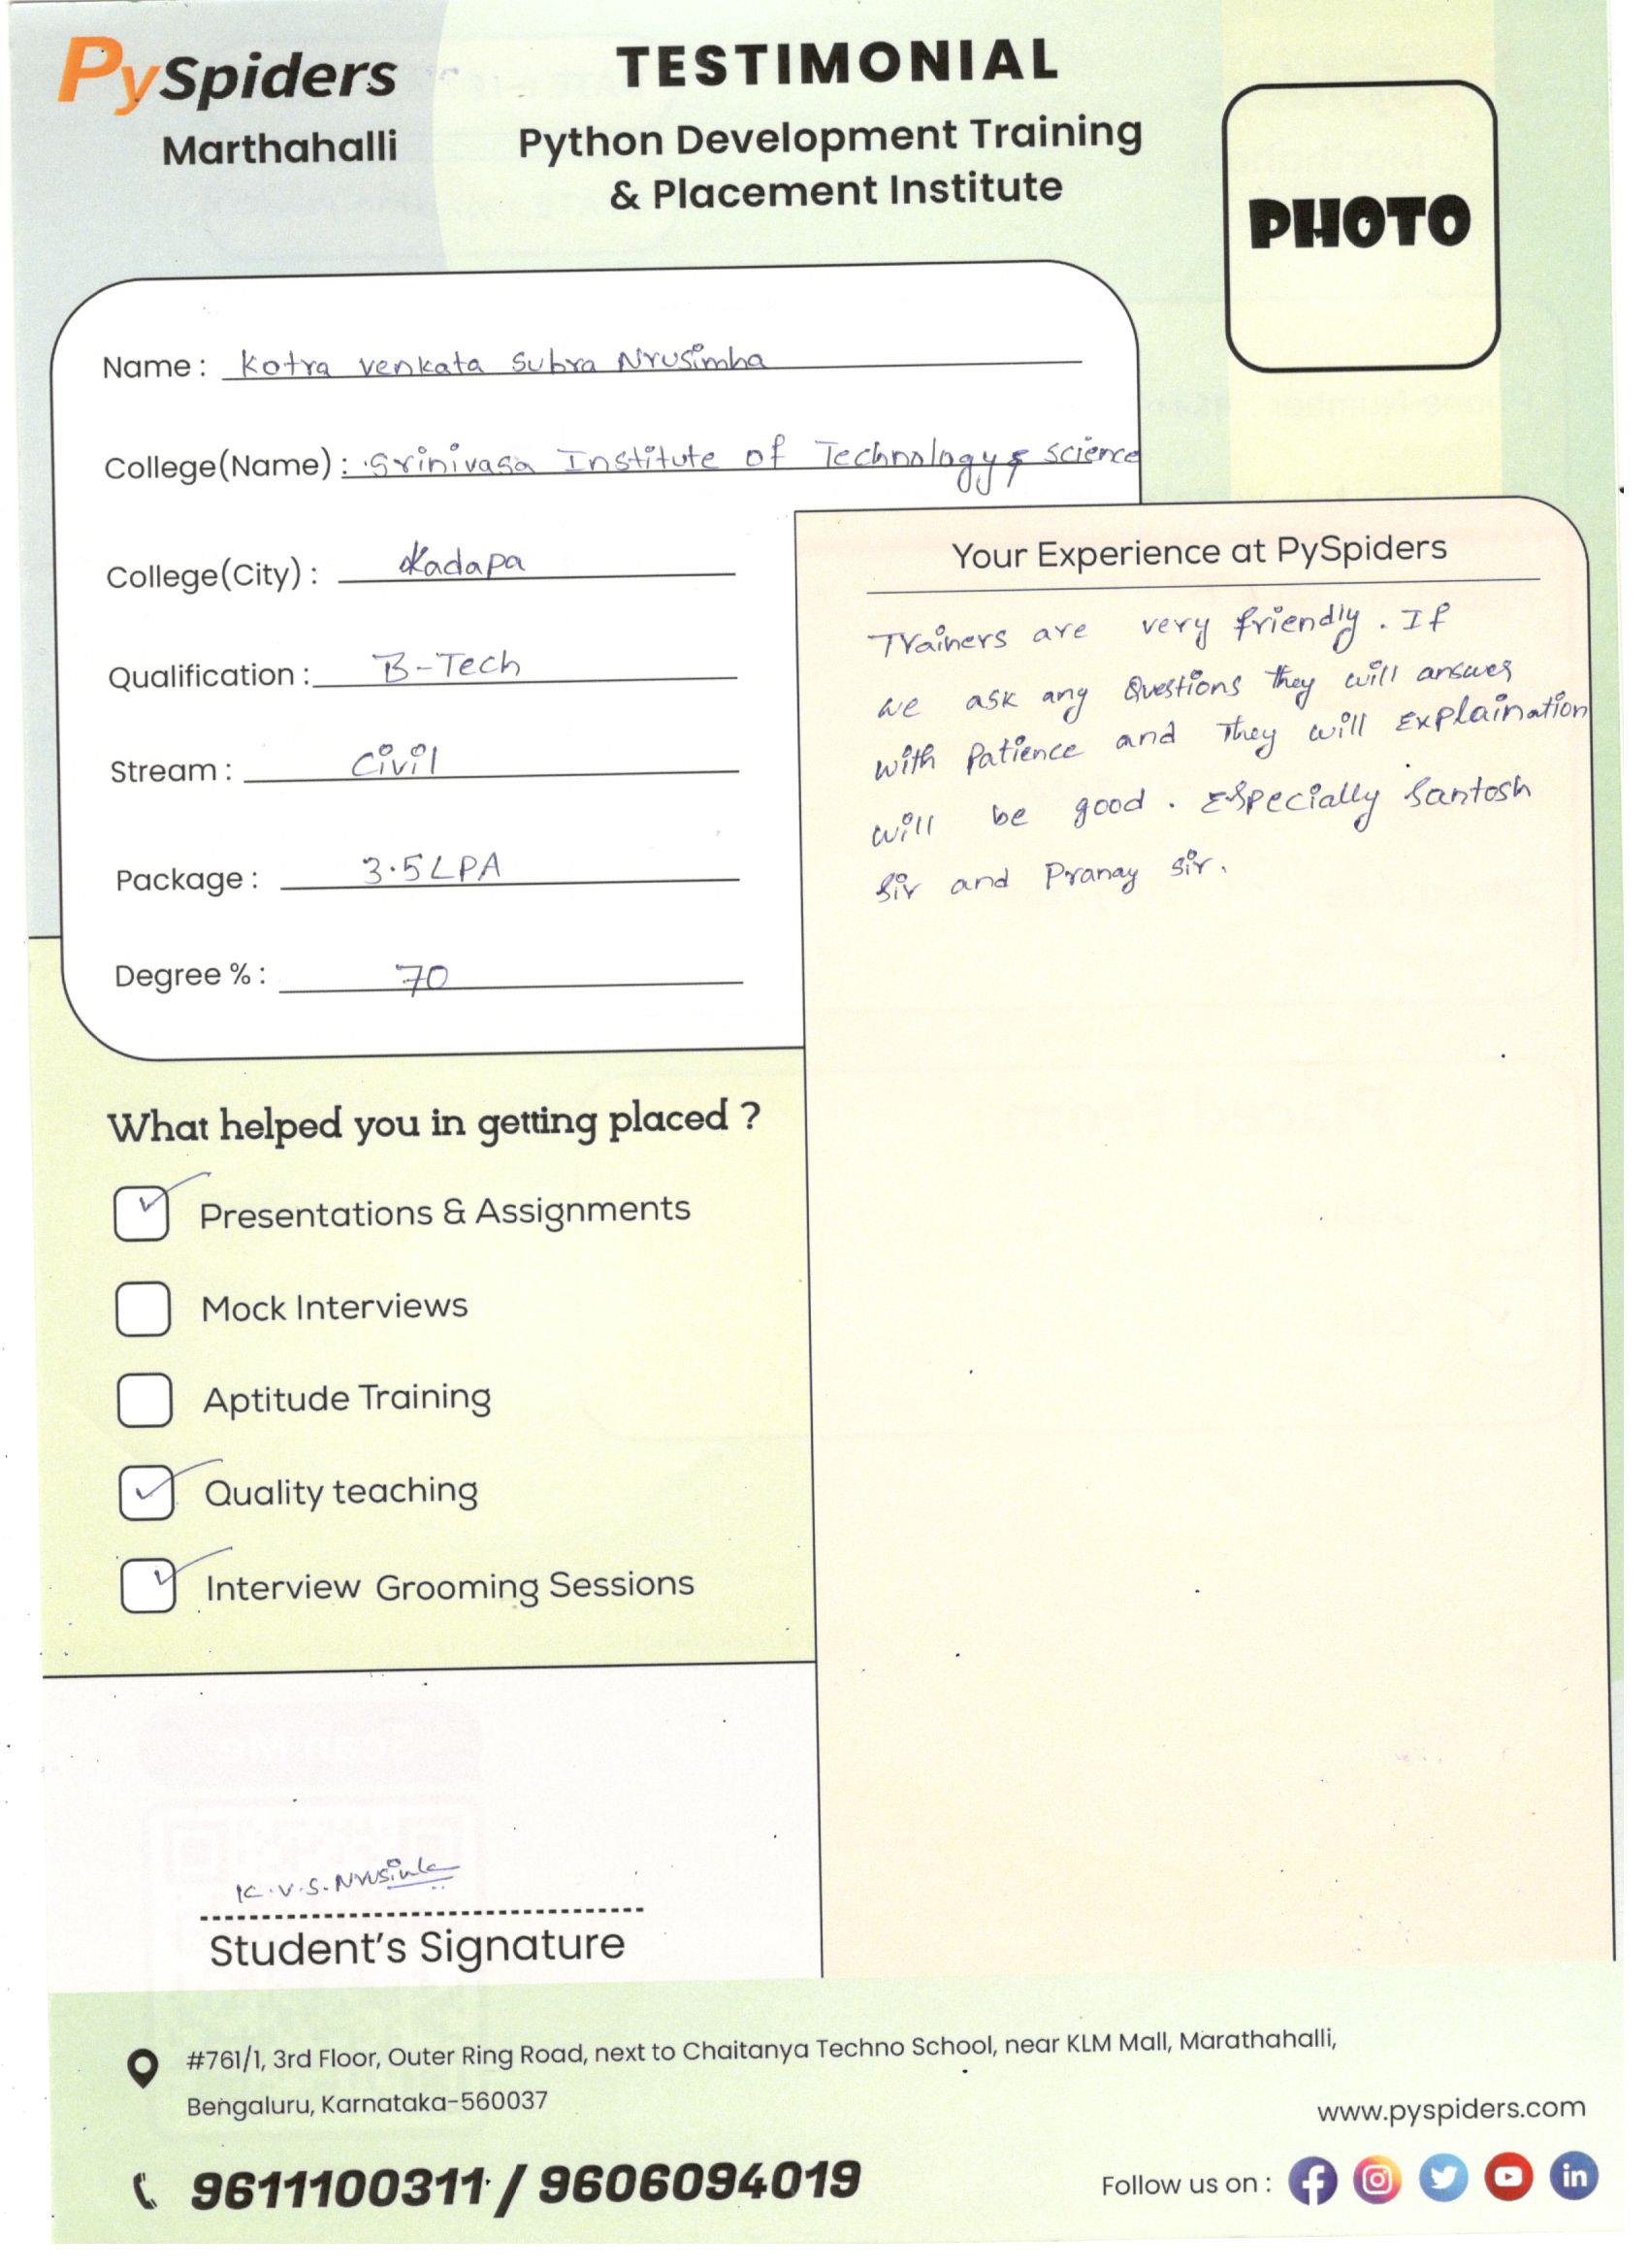 PySpiders
Marthahalli
TESTIMONIAL
Python Development Training
& Placement Institute
PHOTO
Name : Kotra venkata Subra Nrusimha
College(Name) : Srinivasa Institute of Technology & science
College(City) : Kadapa
Qualification : B-Tech
Stream : Civil
Package : 3.5 LPA
Degree % : 70
Your Experience at PySpiders
Trainers are very friendly. If
we ask any Questions they will answer
with Patience and They will Explaination
will be good. Especially Santosh
Sir and Pranay Sir.
What helped you in getting placed ?
Presentations & Assignments
Mock Interviews
Aptitude Training
Quality teaching
Interview Grooming Sessions
K.V.S. Nrusimha
Student's Signature
#761/1, 3rd Floor, Outer Ring Road, next to Chaitanya Techno School, near KLM Mall, Marathahalli,
Bengaluru, Karnataka-560037
www.pyspiders.com
9611100311 / 9606094019
Follow us on :